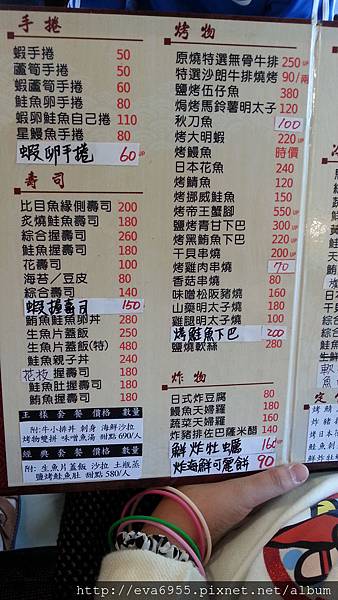 手捲
蝦手捲 50
蘆筍手捲 50
蝦蘆筍手捲 60
鮭魚卵手捲 80
蝦卵鮭魚自己捲 110
星鰻魚手捲 80
蝦卵手捲 60
壽司
比目魚緣側壽司 200
炙燒鮭魚壽司 180
綜合握壽司 260
鮭魚握壽司 180
花壽司 100
海苔/豆皮 80
綜合壽司 140
蝦握壽司 150
鮪魚鮭魚卵丼 280
生魚片蓋飯 250
生魚片蓋飯(特) 480
鮭魚親子丼 240
花枝握壽司 180
鮭魚肚握壽司 180
鮪魚握壽司 180
主樣套餐 價格 數量
附:牛小排丼 刺身 海鮮沙拉
烤物雙拼 味噌魚湯 甜點 690/人
經典套餐 價格 數量
附:生魚片蓋飯 沙拉 土瓶蒸
鹽烤鮭魚肚 甜點 580/人
烤物
原燒特選無骨牛排 250 UP
特選沙朗牛排燒烤 90/兩
鹽烤伍仔魚 380
焗烤馬鈴薯明太子 120
秋刀魚 100
烤大明蝦 220 UP
烤鰻魚 時價
日本花魚 240
烤鯖魚 120
烤挪威鮭魚 150
烤帝王蟹腳 550 UP
鹽烤青甘下巴 300 UP
烤黑鮪魚下巴 220 UP
干貝串燒 230 UP
烤雞肉串燒 70
香菇串燒 80
味噌松阪豬燒 160
山藥明太子燒 150
雞腿明太子燒 190
烤鮭魚下巴 200
鹽燒軟絲 280
炸物
日式炸豆腐 80
鰻魚天婦羅 180
蔬菜天婦羅 160
炸豬排佐巴薩米醋 140
鮮炸牡蠣 160
炸海鮮可麗餅 90
定
http://eva6955.pixnet.net/album